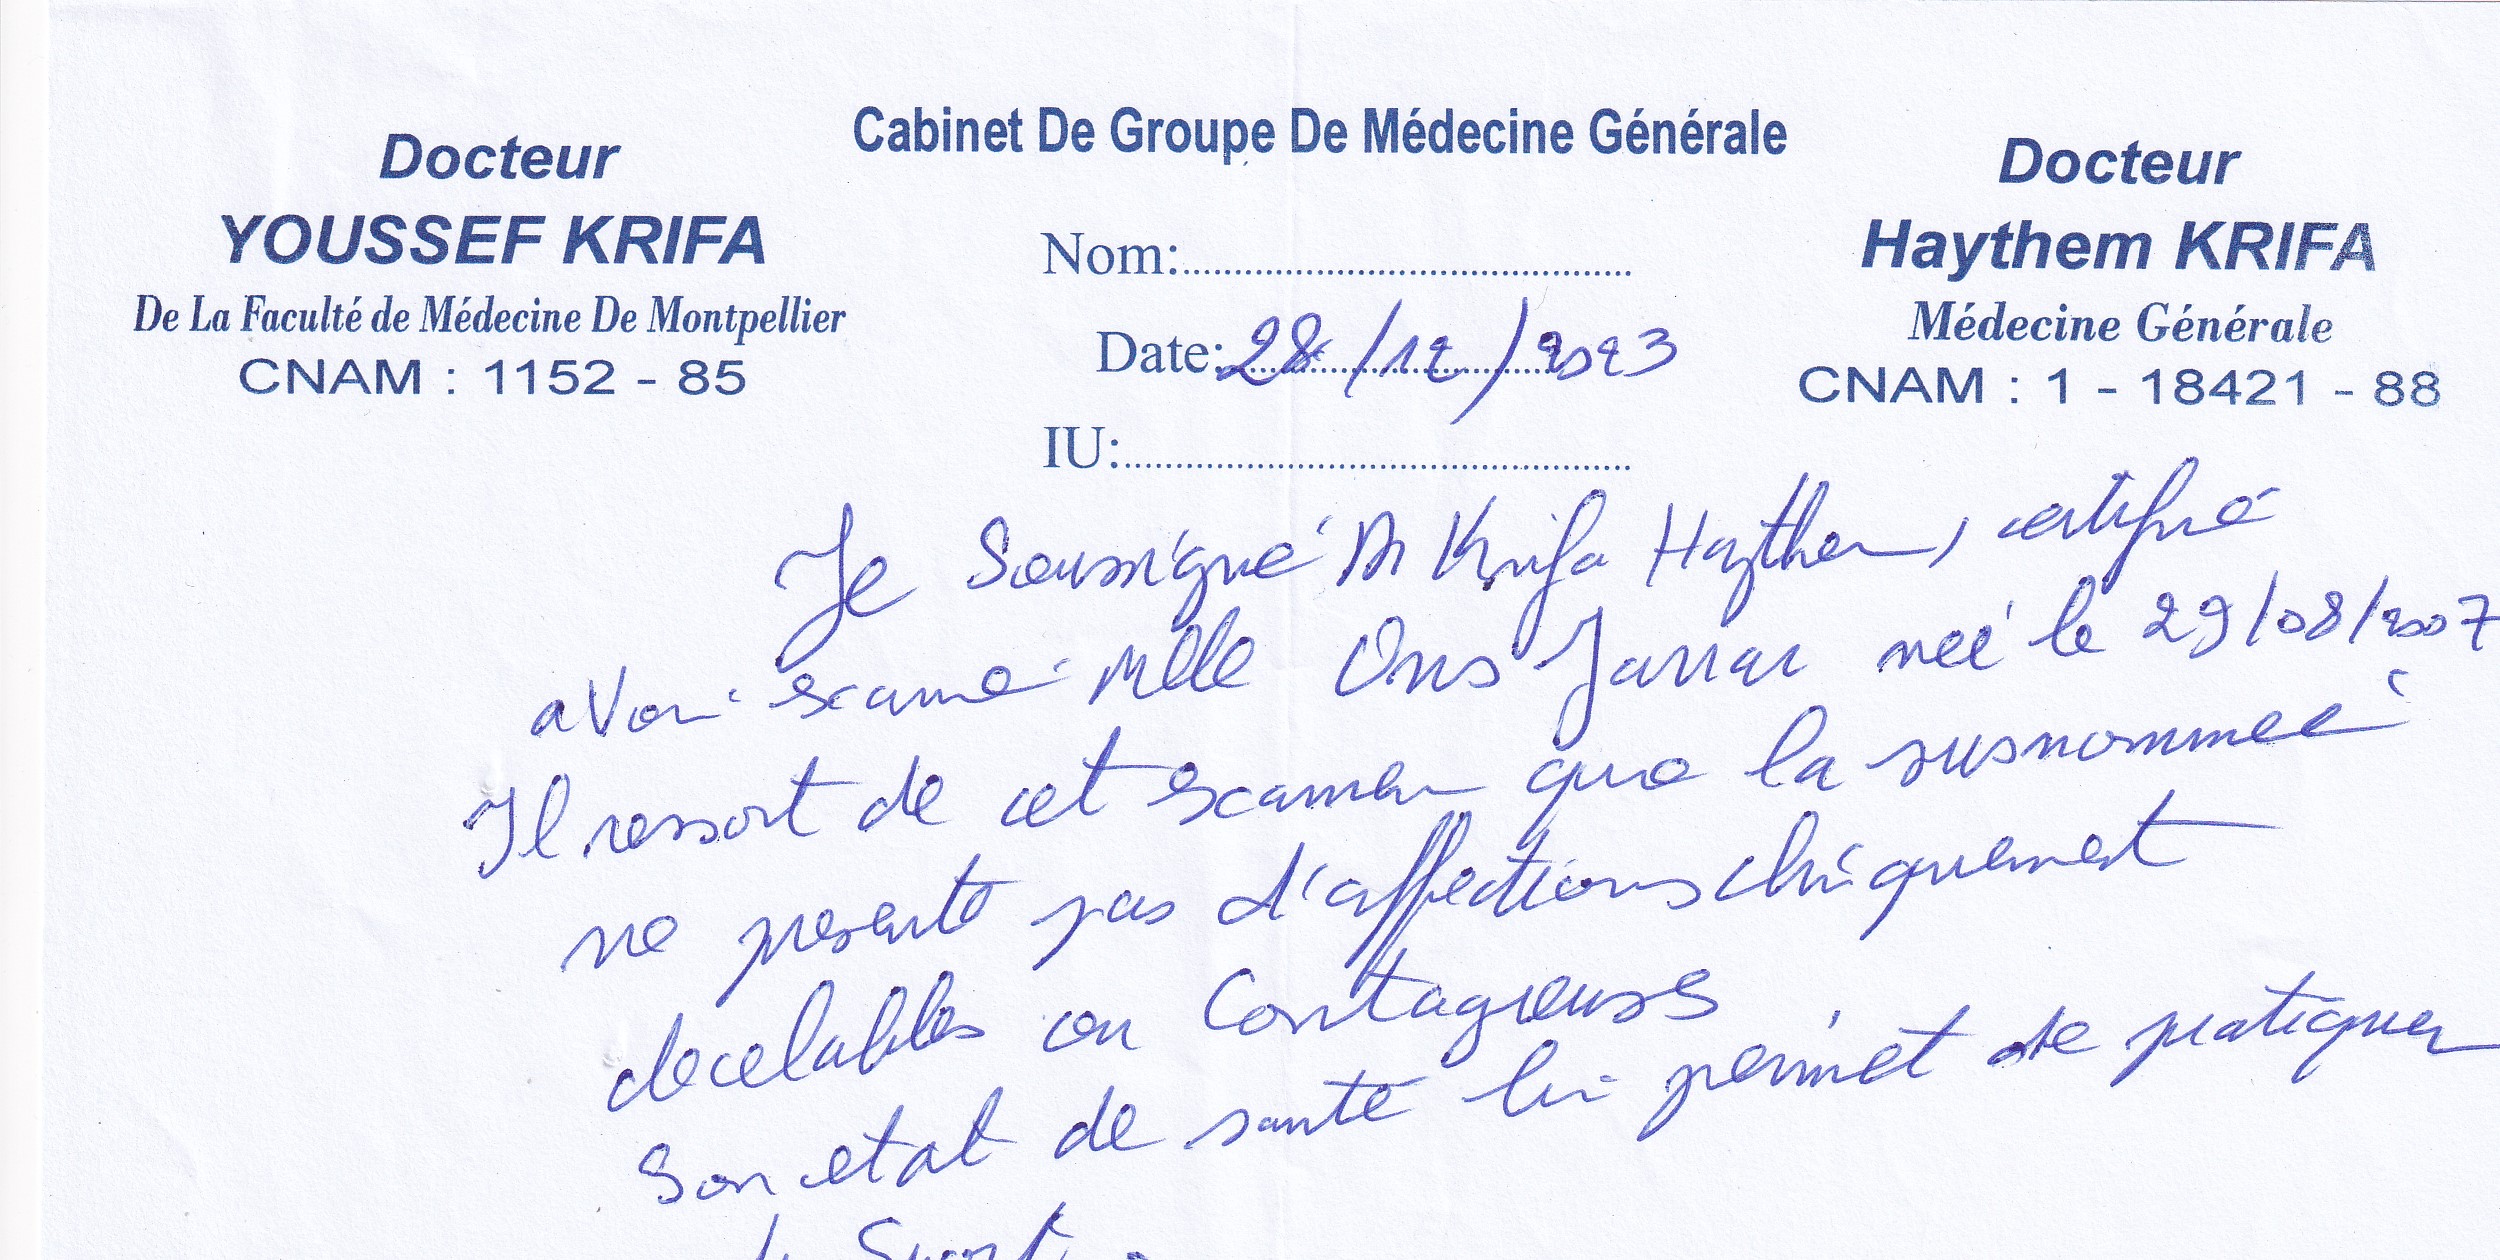 Cabinet De Groupe De Médecine Générale
Docteur
YOUSSEF KRIFA
De La Faculté de Médecine De Montpellier
CNAM : 1152 - 85
Nom:
Date: 28/12/2023
IU:
Docteur
Haythem KRIFA
Médecine Générale
CNAM : 1 - 18421 - 88
Je Soussigné Dr Krifa Haythem, certifié
avoir examiné Mlle Ons Jarrar née le 29/08/2007
Il ressort de cet examen que la susnommée
ne présente pas d'affections cliniquement
decelables ou Contagieuses
Son etat de santé lui permet de pratiquer
le Sport